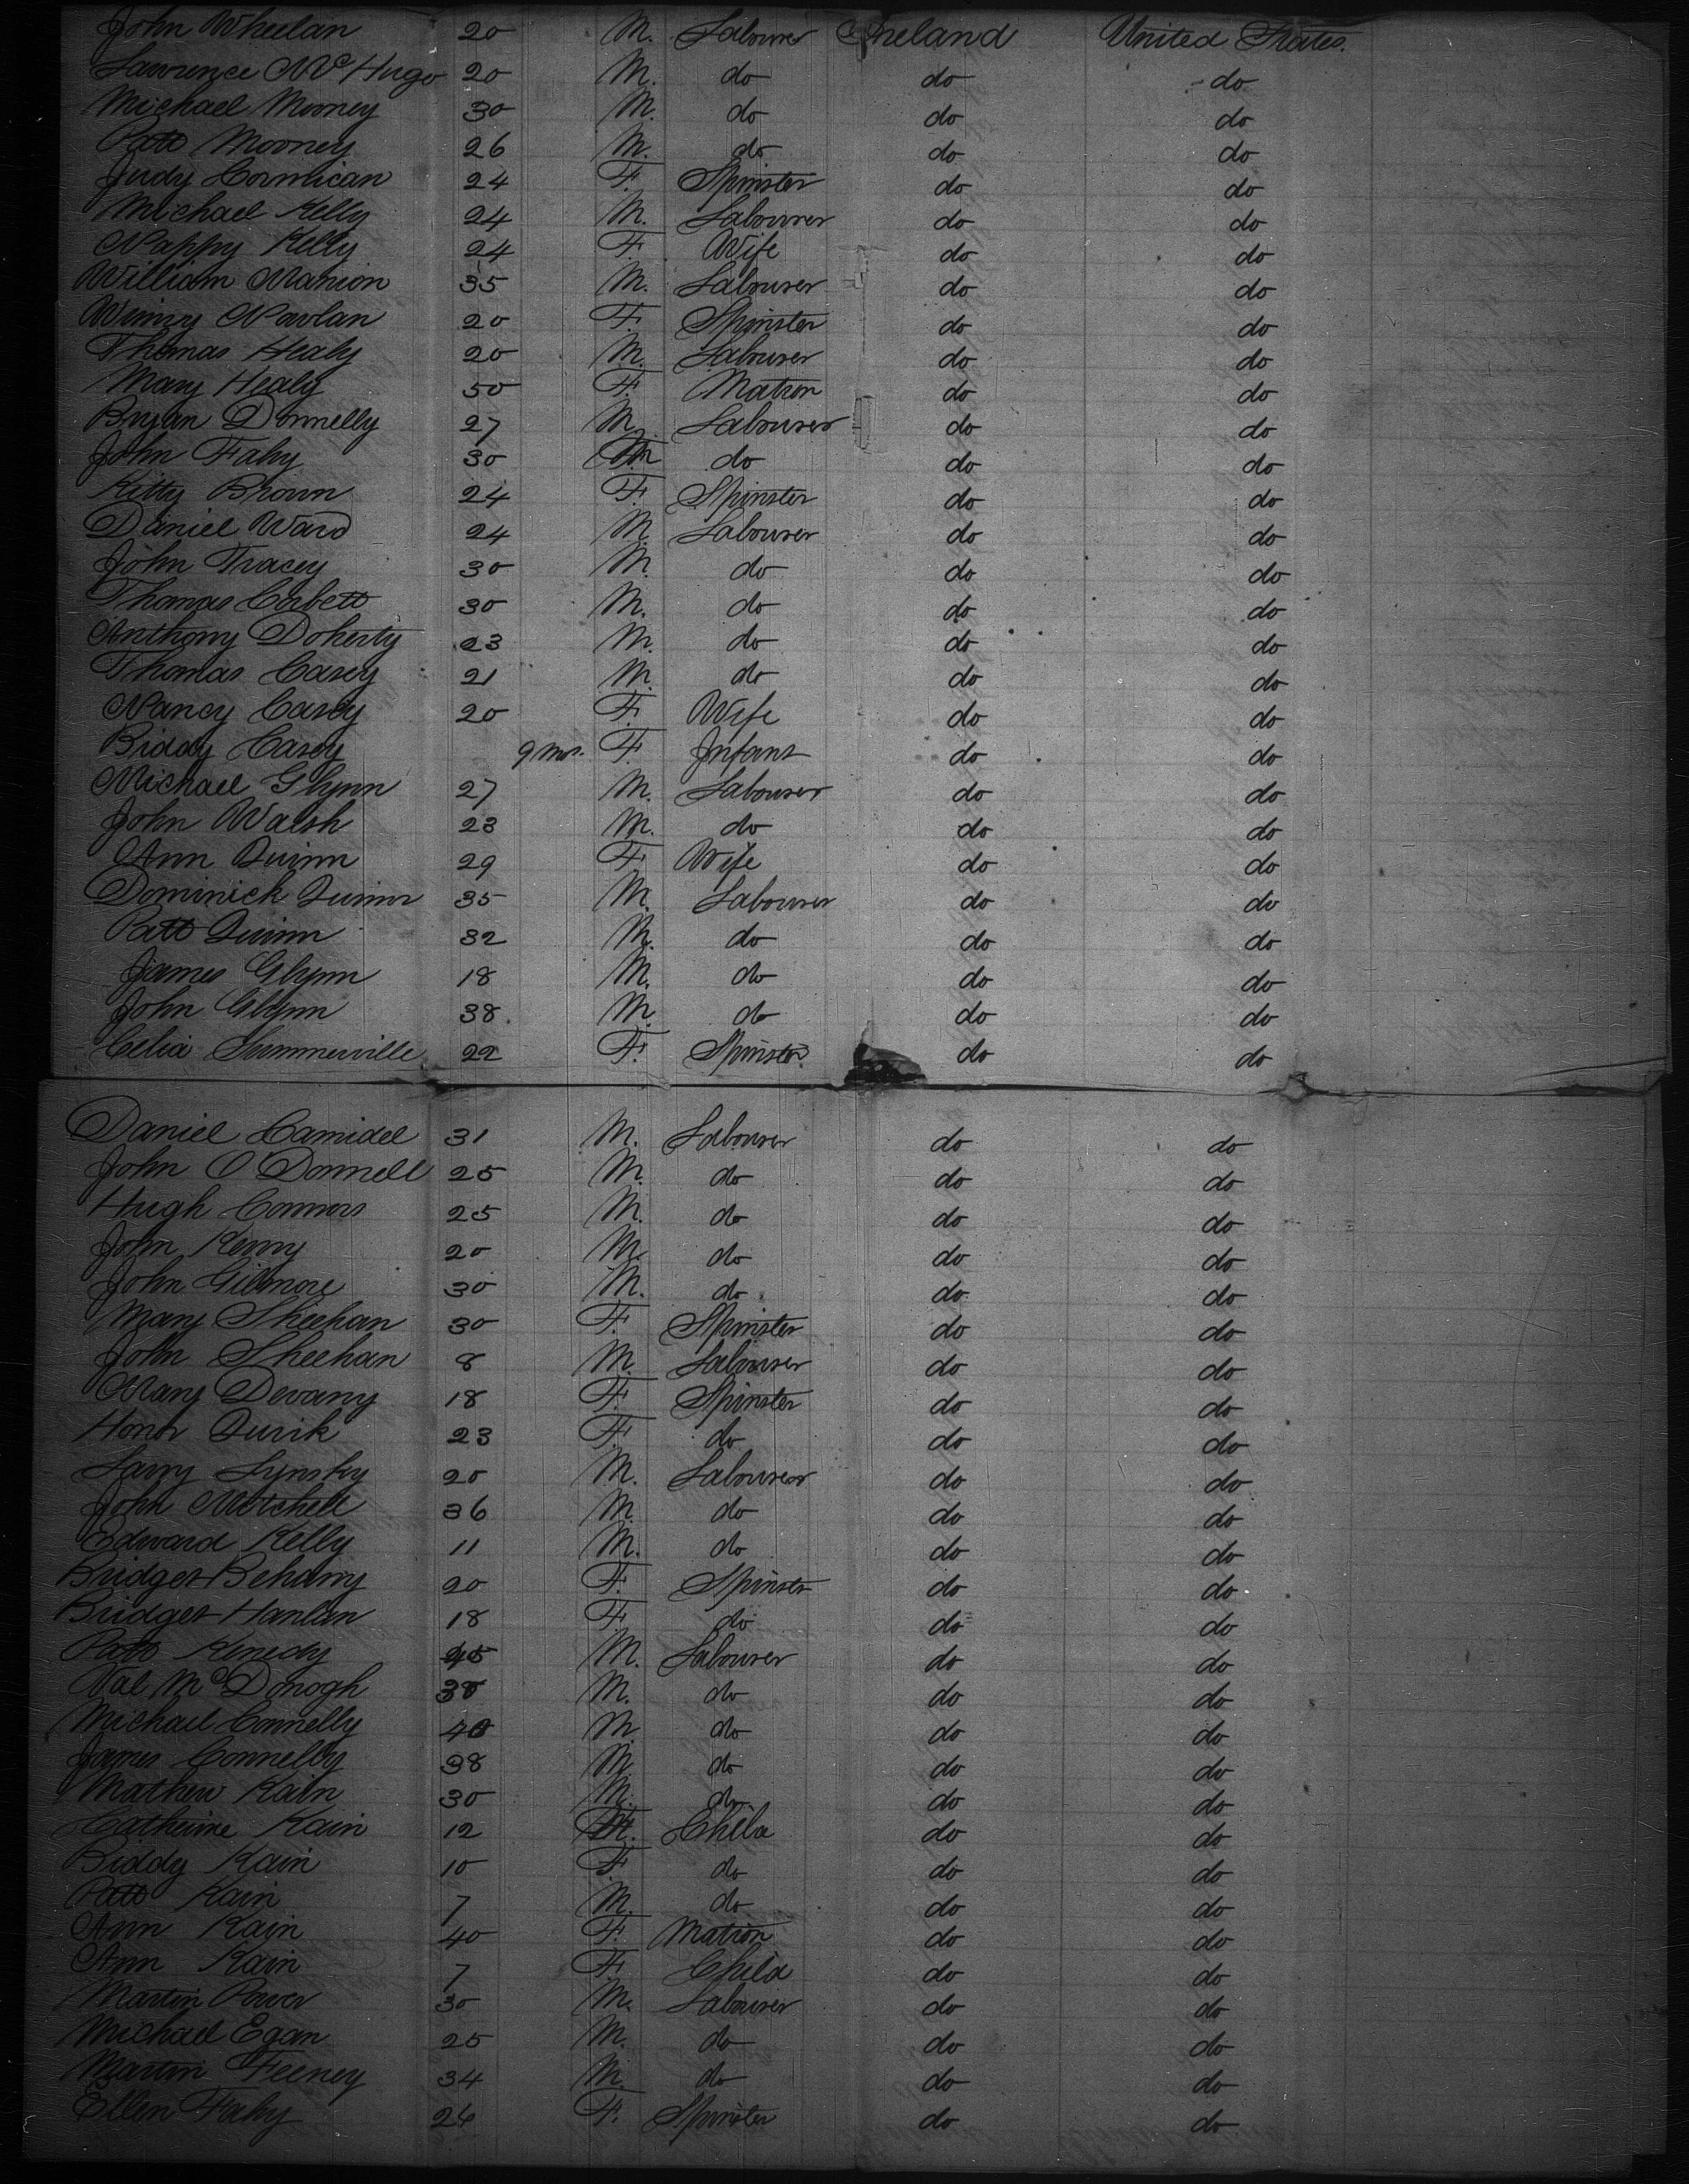 John Wheelan 20 M. Labourer Ireland United States.
Lawrence McHugo 20 M. do do do
Michael Mooney 30 M. do do do
Patt Mooney 26 M. do do do
Judy Cormican 24 F. Spinster do do
Michael Kelly 24 M. Labourer do do
Nappy Kelly 24 F. Wife do do
William Manion 35 M. Labourer do do
Winny Nowlan 20 F. Spinster do do
Thomas Healy 20 M. Labourer do do
Mary Healy 50 F. Matron do do
Bryan Donnelly 27 M. Labourer do do
John Fahy 30 M do do do
Kitty Brown 24 F. Spinster do do
Daniel Ward 24 M. Labourer do do
John Tracey 30 M. do do do
Thomas Corbett 30 M. do do do
Anthony Doherty 23 M. do do do
Thomas Casey 21 M. do do do
Nancy Casey 20 F. Wife do do
Biddy Casey 9 mos. F. Infant do do
Michael Glynn 27 M. Labourer do do
John Walsh 23 M. do do do
Ann Quinn 29 F. Wife do do
Dominick Quinn 35 M. Labourer do do
Patt Quinn 32 M. do do do
James Glynn 18 M. do do do
John Glynn 38 M. do do do
Celia Summerville 22 F. Spinster do do
Daniel 31 M. Labourer do do
John O'Donnell 25 M. do do do
Hugh Connors 25 M. do do do
John Kenny 20 M. do do do
John Gillmore 30 M. do do do
Mary Sheehan 30 F. Spinster do do
John Sheehan 8 M. Labourer do do
Mary Devany 18 F. Spinster do do
Honor Quirk 23 F. do do do
Larry Lynsky 20 M. Labourer do do
John Mitchell 36 M. do do do
Edward Kelly 11 M. do do do
Bridget Beharry 20 F. Spinster do do
Bridget Hanlan 18 F. do do do
Patt Kenedy 45 M. Labourer do do
Val McDonogh M. do do do
Michael Connelly 40 M. do do do
James Connelly 38 M. do do do
Mathew Kain 30 M. do do do
Catherine Kain 12 F. Child do do
Biddy Kain 10 F. do do do
Patt Kain 7 M. do do do
Ann Kain 40 F. Matron do do
Ann Kain 7 F. Child do do
Martin Power 30 M. Labourer do do
Michael Egan 25 M. do do do
Martin Feeney 34 M. do do do
Ellen Fahy 26 F. Spinster do do